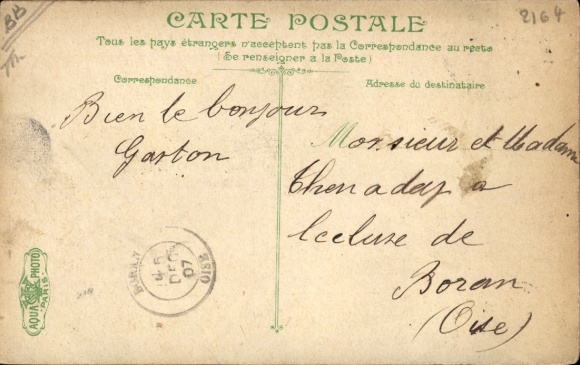 BB
2164
CARTE POSTALE
Tous les pays étrangers n'acceptent pas la Correspondance au recto
(Se renseigner a la Poste)
Correspondance
Adresse du destinataire
Bien le bonjour
Gaston
Monsieur et Madame
Thenaday a
lecluse de
Boran
(Oise)
OISE
DEC
07
AQUA PHOTO
PARIS